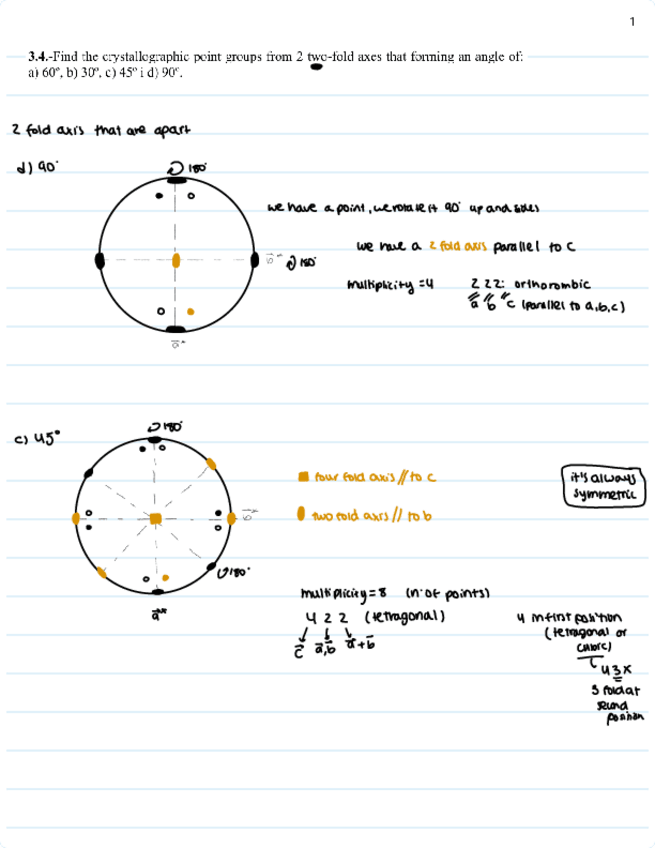 1
3.4.-Find the crystallographic point groups from 2 two-fold axes that forming an angle of:
a) 60º, b) 30º, c) 45º i d) 90º.
2 fold axis that are apart
d) 90°
180°
we have a point, we rotate it 90° up and sides
we have a 2 fold axis parallel to c
180°
multiplicity = 4
2 2 2: orthorombic
a b c (parallel to a,b,c)
a*
c) 45°
180°
four fold axis // to c
it's always
symmetric
two fold axis // to b
180°
a*
multiplicity = 8 (nº of points)
4 2 2 (tetragonal)
c a,b a+b
4 in first position
(tetragonal or
cubic)
4 3 x
3 fold at
second
position